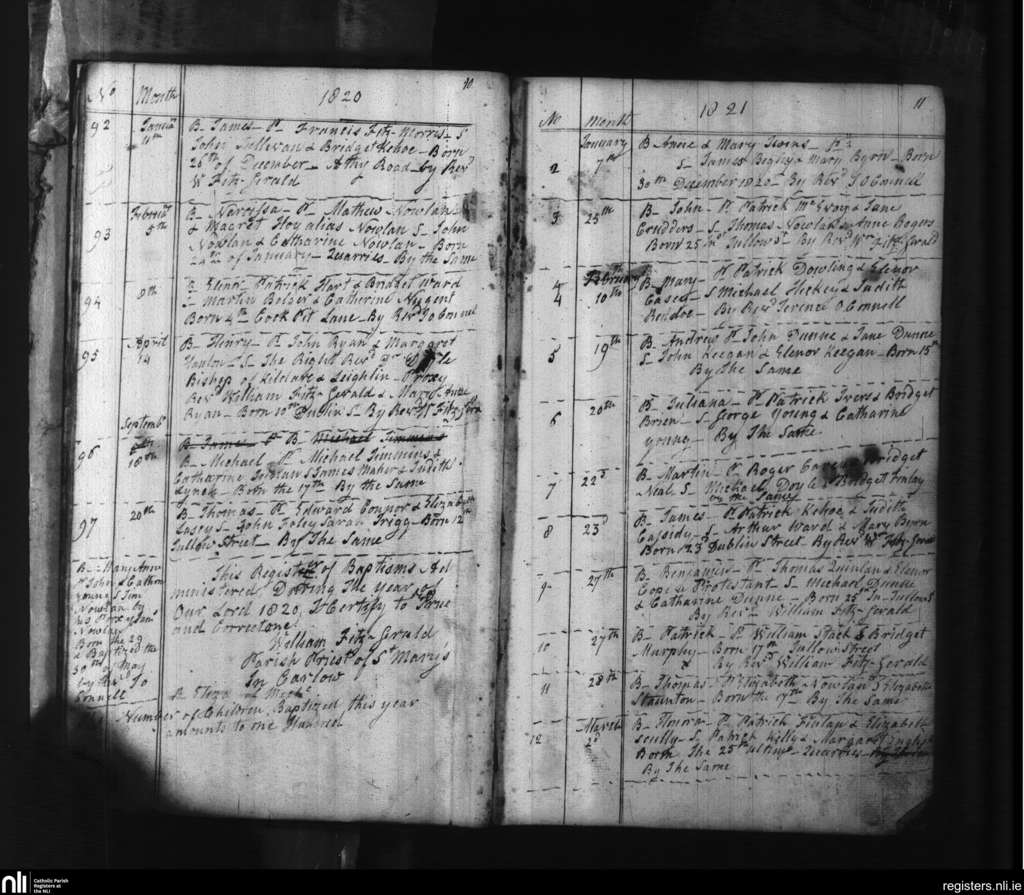 No Month 1820 10
92 Januar 11th B- James- Pt Francis Fitz-Morris- S
John Sullivan & Bridget Kehoe- Born
26th of December- Athy Road- by Revd
W Fitz-Gerald
93 Februar 5th B- Norcissa- Pt Mathew Nowlan
& Magret Hoy alias Nowlan S- John
Nowlan & Catharine Nowlan- Born
24th of January- Quarries- By the Same
94 9th B- Elenor- Patrick Hart & Bridget Ward
S- Martin Bolger & Catherine Nugent
Born 4th Cock Pit Lane- By Revd J O Connel
95 April 14 B- Henry- Pt John Ryan & Margaret
Hanlon- S- The Right Revd Dr
Bishop of Kildare & Leighlin- Proxy
Revd William Fitz-Gerald & Mary Anne
Ryan- Born 10th Dublin S- By Revd W Fitz-Gera
Septemb
B- James- Pt B- Michael Timmins
96 18th B- Michael Pt Michael Timmins &
Catharine S James Maher & Judith
Lynch- Born the 17th By the Same
97 20th B- Thomas- Pt Edward Connor & Elizabeth
Casey S- John Foley Sarah Trigg- Born 12th
Tullow Street- By The Same
B- Mary Anne
Pt John & Cathrin
Young S Jim
Nowlan by
his Proxy Jam
Nowlan
Born the 29
& Baptized the
30th of May
by the Jo
Connell
This Register of Baptisms Ad
ministered During The Year of
Our Lord 1820, I Certify to True
and Correct one
William Fitz-Gerald
Parish Priest of St Mary's
In Carlow
Number of Children Baptized this year
amounts to one Hundred
No month 1821 11
2 January 7th B Anne & Mary Twins- Pt
S- James Begley & Mary Byrne- Born
30th December 1820- By Revd J O Connell
3 25th B- John- Pt Patrick McEvoy & Jane
S- Thomas Nowlan & Anne Rogers
Born 25 in Tullow S- By Revd Wm Fitz Gerald
4 February
4 10th B- Mary- Pt Patrick Dowling & Elenor
Casey- S Michael Hickey & Judith
By Revd Terence O Connell
5 19th B- Andrew Pt John Dunne & Jane Dunne
S- John Keegan & Elenor Keegan- Born 15th
By the Same
6 20th B- Juliana- Pt Patrick Ivers & Bridget
Brien- S- George Young & Catharine
young- By The Same
7 22d B- Martin- Pt Roger Bridget
Neal S- Michael Doyle & Bridget Fralay
By the Same
8 23d B- James- Pt Patrick Kehoe & Judith
Cassidy- S- Arthur Ward & Mary Byrn
Born 23 Dublin Street By Revd W Fitz-Gerald
9 27th B- Benjamin- Pt Thomas Quinlan & Elenor
Cope a Protestant- S- Michael Dunne
& Catharine Dunne- Born 25th In Tullow S
By Revd William Fitz-Gerald
10 27th B- Patrick- Pt William Stack & Bridget
Murphy- Born 17th Tullow Street
By Revd William Fitz-Gerald
11 28th B- Thomas- Pt Elizabeth Nowlan S Elizabeth
Staunton- Born the 17th- By the Same
12 March 2d B- Honora- Pt Patrick Finlay & Elizabeth
Scully- S- Patrick Kelly & Margaret English
Born The 25th ultimo- Quarries-
By The Same
nli
Catholic Parish
Registers at
the NLI
registers.nli.ie